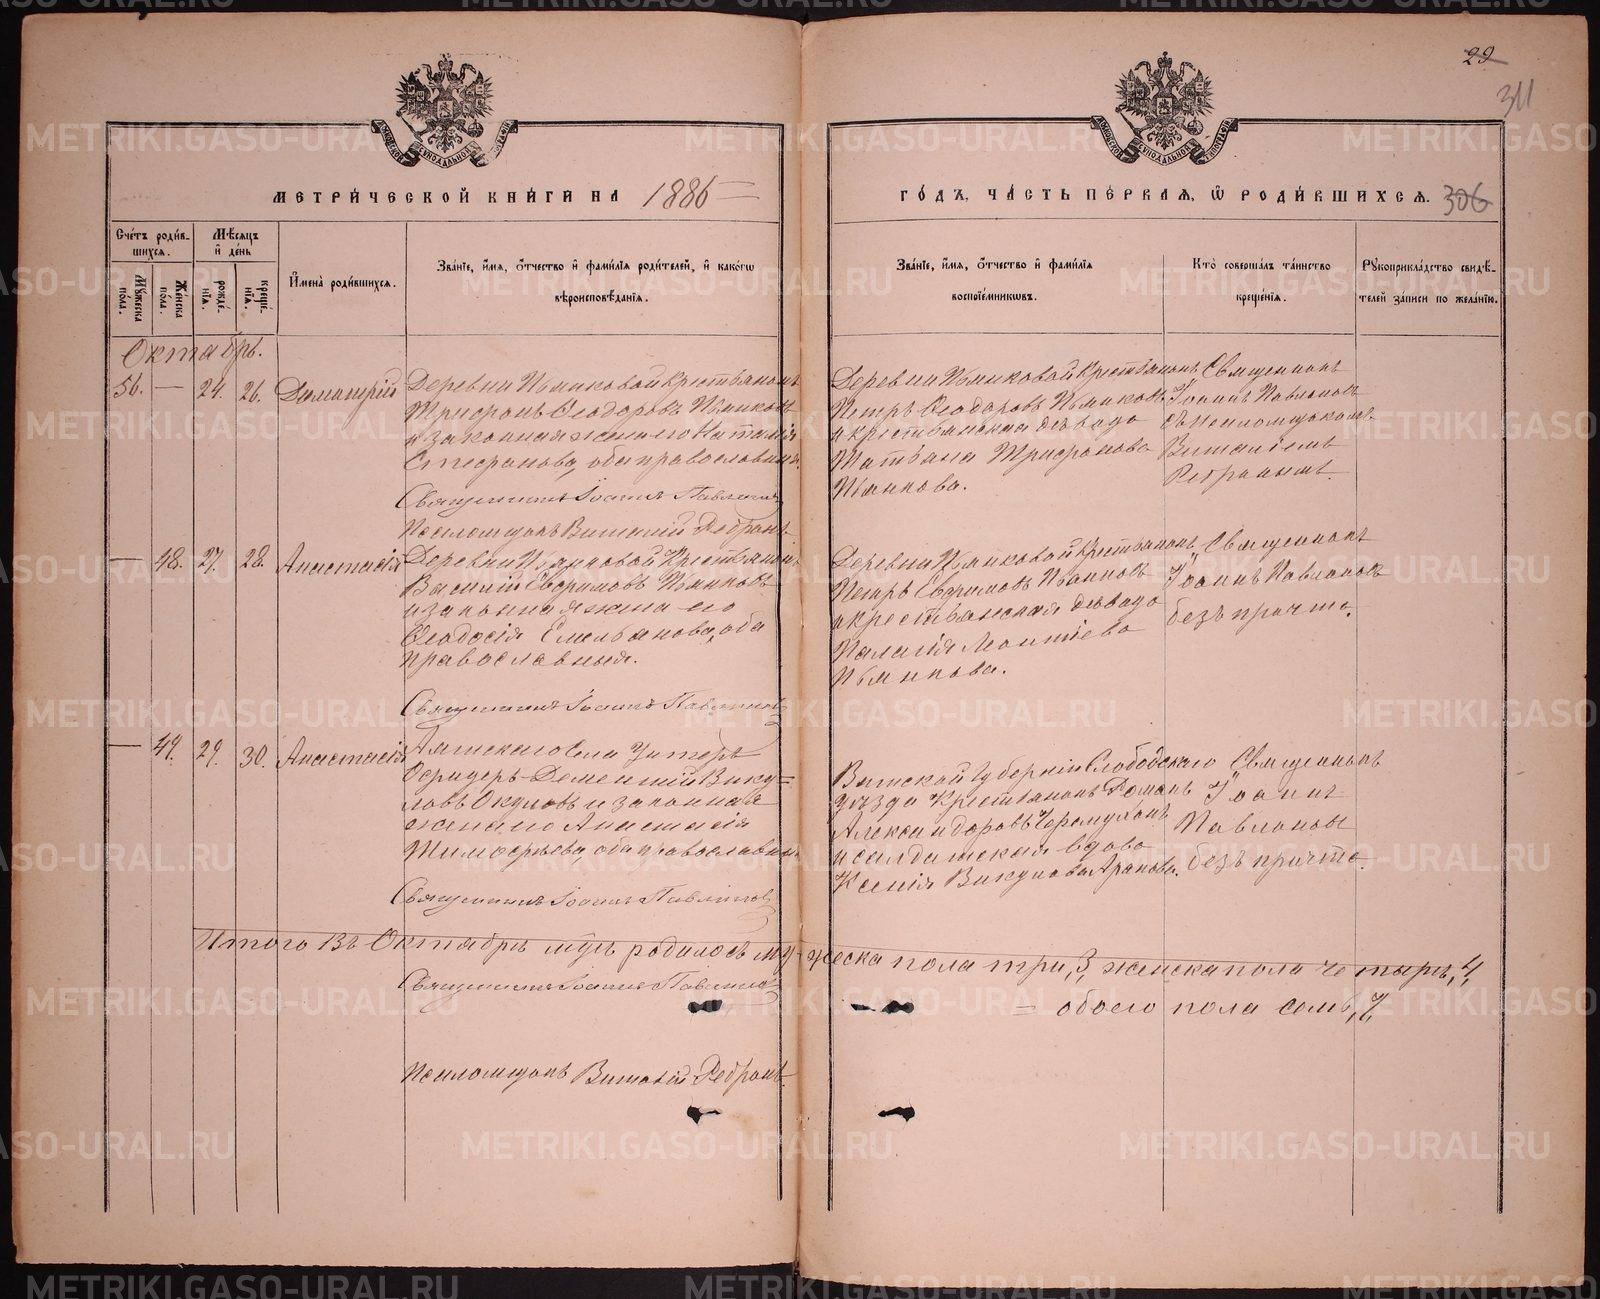 29
311
МЕТРИ́ЧЕСКОЙ КНИ́ГИ НА 1886
ГО́ДЪ, ЧА́СТЬ ПЕ́РВАЯ, Ѿ РОДИ́ВШИХСЯ. 306
Сче́тъ роди́вшихся.
Му́жеска по́ла.
Же́нска по́ла.
Мѣ́сяцъ и҆ де́нь
рожде́нїя.
креще́нїя.
И҆мена̀ роди́вшихся.
Зва́нїе, и҆́мя, ѻ҆́тчество и҆ фами́лїя роди́телей, и҆ како́гѡ
вѣроисповѣ́данїя.
Зва́нїе, и҆́мя, ѻ҆́тчество и҆ фами́лїя
воспрїе́мникѡвъ.
Кто̀ соверша́лъ та́инство
креще́нїя.
Рꙋкоприкла́дство свидѣ́телей за́писи по жела́нїю.
Октябрь.
56. — 24. 26. Димитрій
Деревни Пьянковой крестьянинъ
Трифонъ Ѳеодоровъ Пьянковъ
и законная жена его Наталія
Стефанова, оба православные.
Священникъ Іоаннъ
Псаломщикъ Виталій
Деревни Пьянковой крестьянинъ
Петръ Ѳеодоровъ Пьянковъ
и крестьянская дѣвица
Татьяна Трифонова
Пьянкова.
Священникъ
Іоаннъ
съ псаломщикомъ
Виталіемъ
— 48. 27. 28. Анастасія
Деревни Пьянковой Крестьянинъ
Василій Евфимовъ Пьянковъ
и законная жена его
Ѳеодосія Емельянова, оба
православныя.
Священникъ Іоаннъ
Деревни Пьянковой крестьянинъ
Петръ Евфимовъ Пьянковъ
и крестьянская дѣвица
Палагія Леонтіева
Пьянкова.
Священникъ
Іоаннъ
безъ причта.
— 49. 29. 30. Анастасія
Села Унтеръ
Офицеръ Дементій Вику=
ловъ Окуловъ и законная
жена его Анастасія
Тимофѣева, оба православны
Священникъ Іоаннъ
Вятской Губерніи Слободскаго
уѣзда Крестьянинъ Романъ
Александровъ
и солдатская вдова
Ксенія Викулова
Священникъ
Іоаннъ
безъ причта.
Итого въ Октябрѣ м-цѣ родилось мужеска пола три, 3, женска пола четыре, 4,
= обоего пола семь, 7,
Священникъ Іоаннъ
Псаломщикъ Виталій